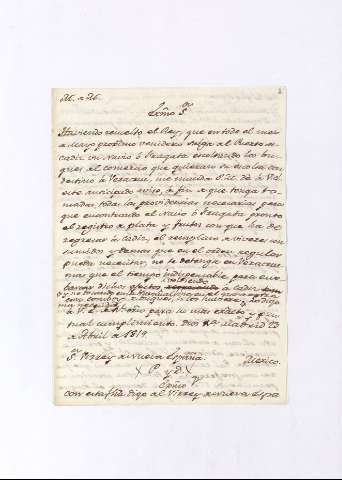 Exmo Sr.
Haviendo resuelto el Rey, que en todo el mes
de Mayo proximo venidero salga del Puerto de
Cadiz un Navio ó Fragata escoltando los bu-
ques del comercio que quieran su escolta con
destino á Veracruz, me manda S. M. dé á V. E.
este anticipado aviso, á fin de que tenga to-
madas todas las providencias necesarias para
que encontrando el Navio ó Fragata pronto
el registro de plata y frutos con que ha de
regresar á Cadiz, el remplazo de viveres con-
sumidos y demas que en el orden regular
pueda necesitar, no se detenga en Veracruz
mas que el tiempo indispensable para em-
barcar dichos efectos,
á V. E. de Rl. orden para su mas exacto y pun-
tual cumplimiento. Dios &a. Madrid 23
de Abril de 1819.
Sr. Virrey de Nueva España
Mexico.
P. y D.
Exmo Sr.
Con esta fha digo al Virrey de Nueva Espa